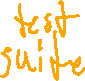 test
suite